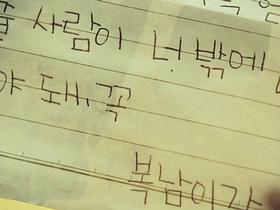 사람이 너밖에
야 돼 꼭
복남이가